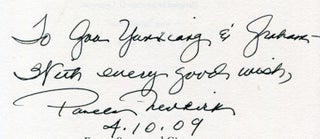 To Gao Yunxiang & Graham –
With every good wish,
Pamela Newkirk
4.10.09